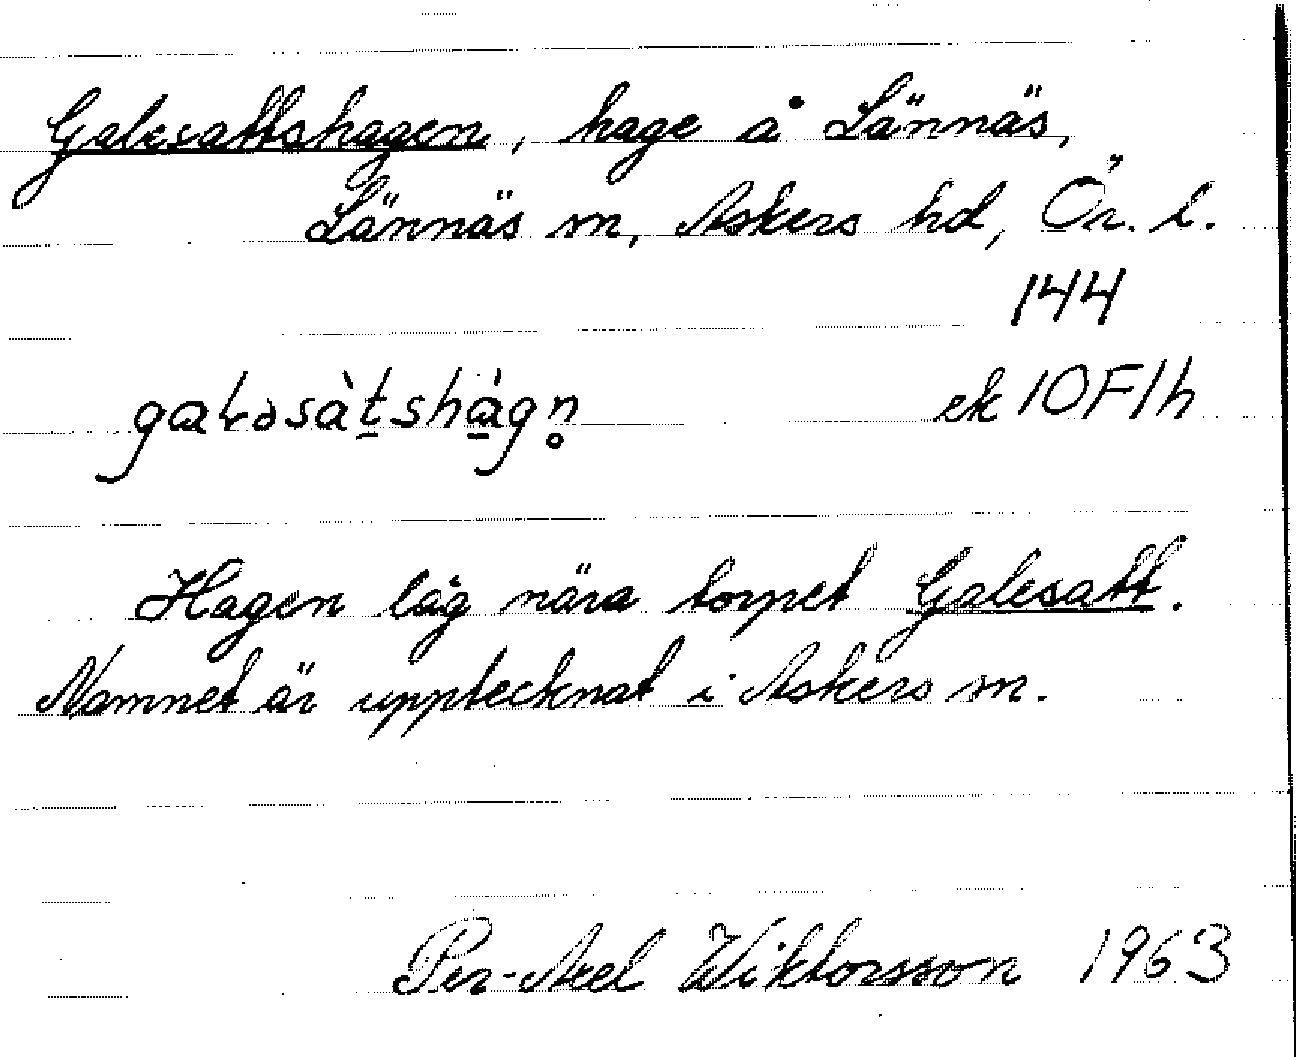 Galesattshagen, hage å Lännäs,
Lännäs sn, Askers hd, Ör. l.
144
gaLəsàtshàgn̥ ek 10F1h
Hagen låg nära torpet Galesatt.
Namnet är upptecknat i Askers sn.
Per-Axel Wiktorsson 1963